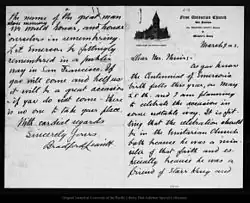 the name of the great man
whose memory
we would honor, and honor
ourselves in remembering.
Let Emerson be fittingly
remembered in a public
way in San Francisco. If
you will come and help us
it will be a great occasion
if you do not come there
is no one to take your place.
With cordial regards
Sincerely Yours
Bradford Leavitt
First Unitarian Church
San Francisco
March 9
Dear Mr. Muir:
As you know
the Centennial of Emerson's
birth falls this year, on May
25th. and I am planning
to celebrate the occasion in
some notable way. It is fit-
ting that the celebration should
be in the Unitarian Church
both because he was a min-
ister of that faith and es-
pecially because he was a
friend of Starr King and